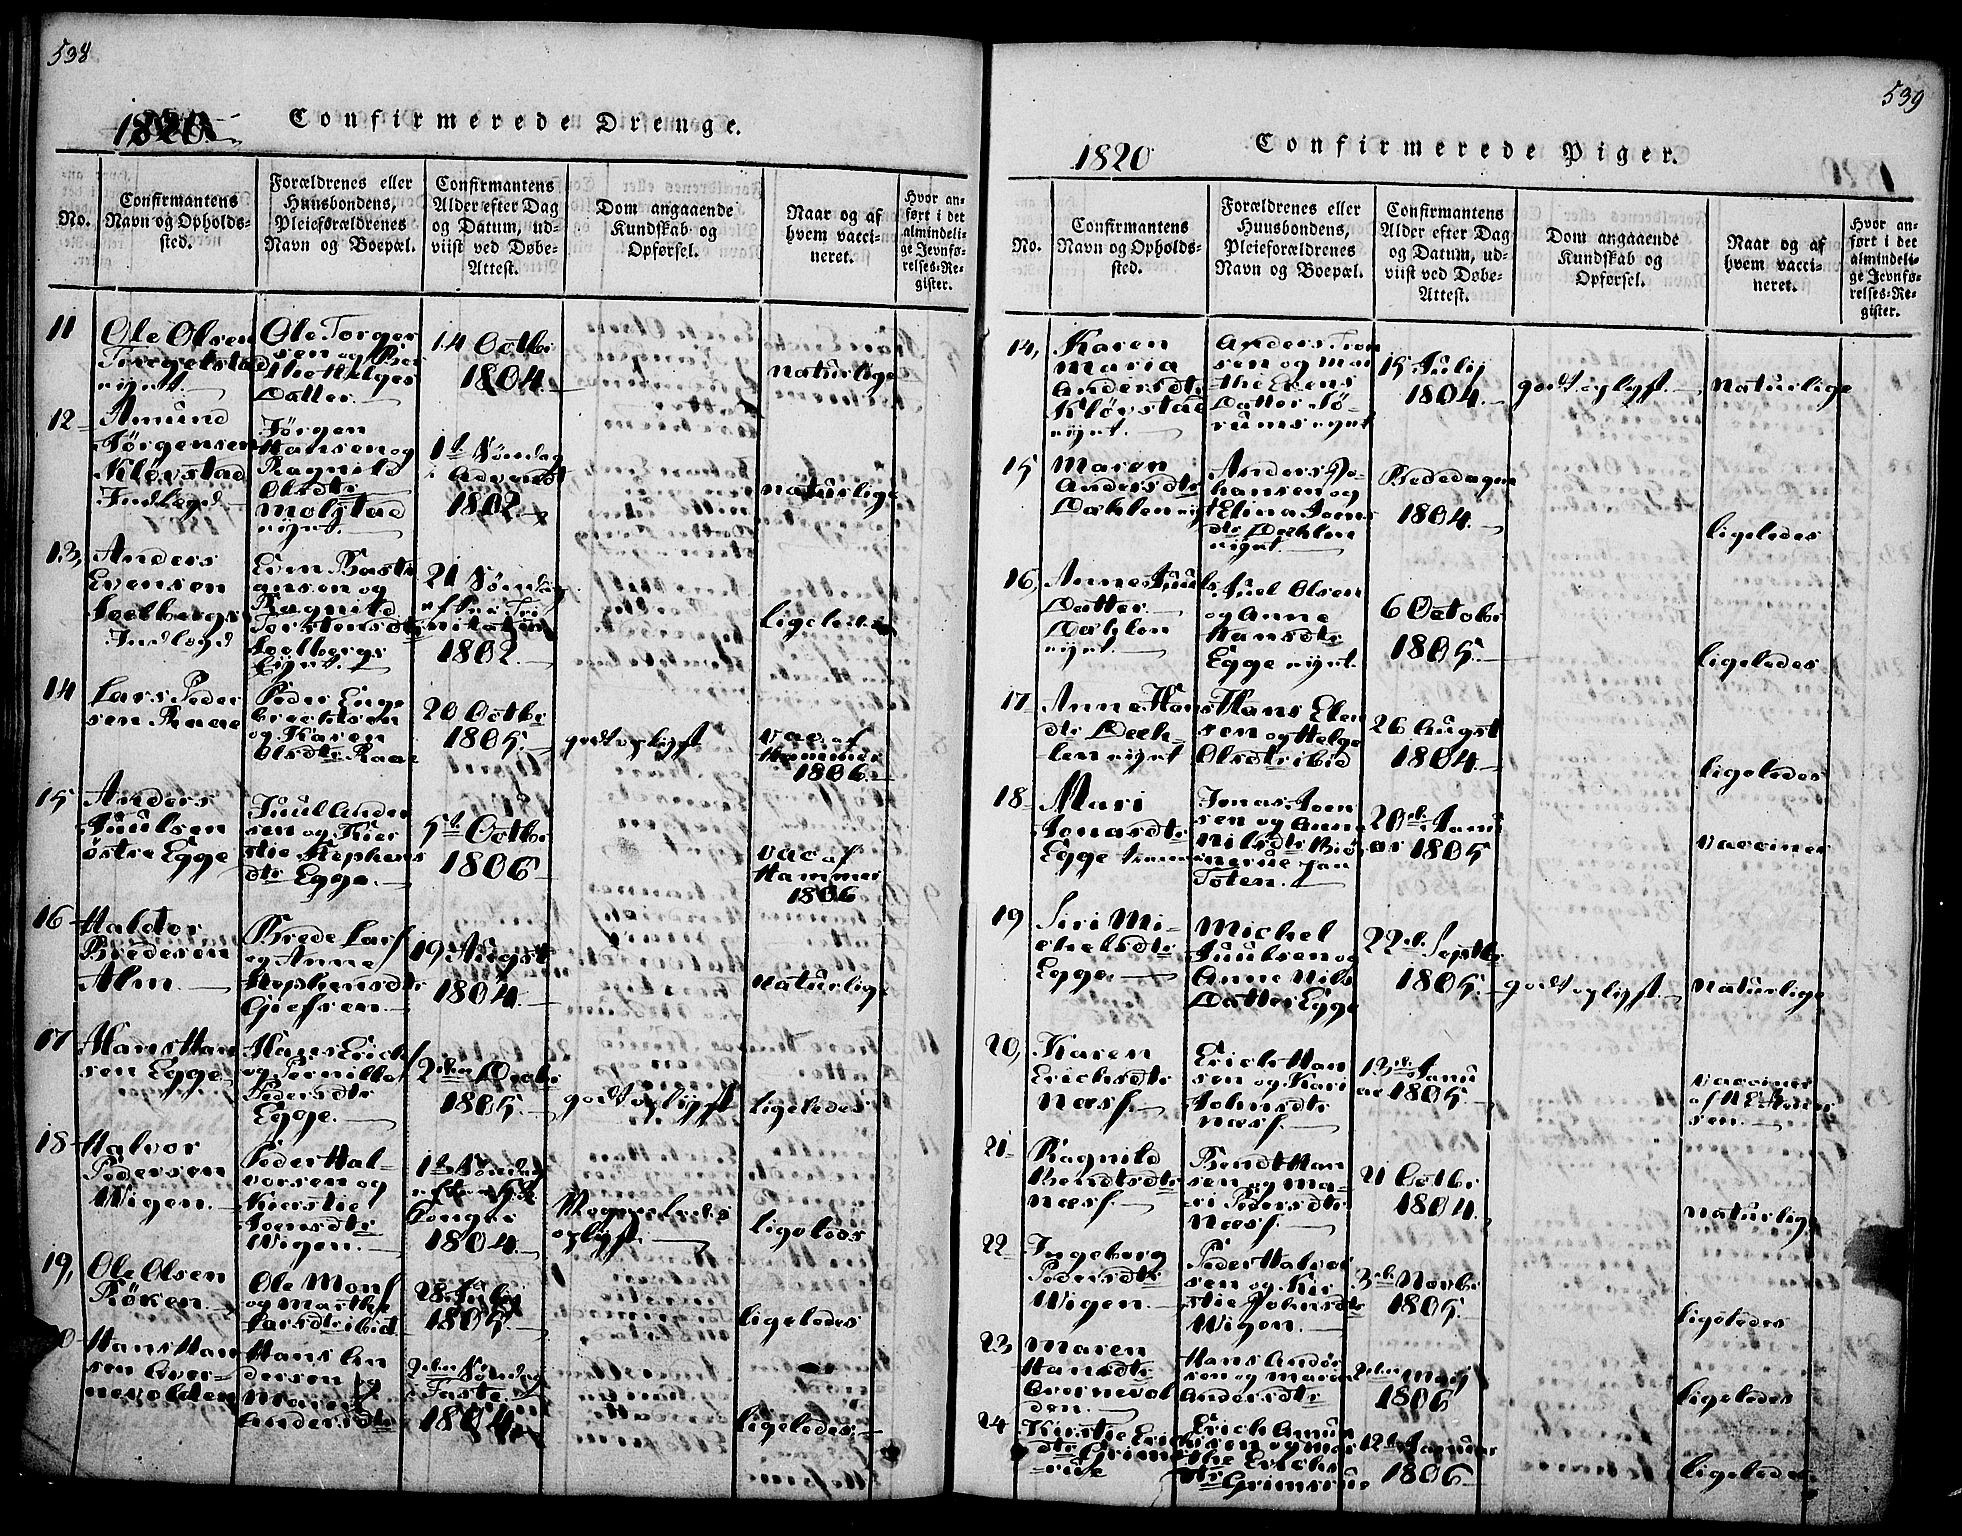 538
1820
Confirmerede Drenge.
No.
Confirmantens
Navn og Opholds-
sted.
Forældrenes eller
Huusbondens,
Pleieforældrenes
Navn og Boepæl.
Confirmantens
Alder efter Dag
og Datum, ud-
viist ved Døbe-
Attest.
Dom angaaende
Kundskab og
Opførsel.
Naar og af
hvem vacci-
neret.
Hvor an-
ført i det
almindeli-
ge Jevnfø-
relses-Re-
gister.
11
Ole Olsen
Ole Torger
sen og
the Helges
Datter
14 Octbr
1804.
naturlige
12
Amund
Jørgensen
Kløvstad
Indlagd
Jørgen
Hansen og
Ragnild
Olsdtr
Molstad
eignt.
1st Søndag
i Advendt
1802.
naturlige
13,
Anders
Evensen
Soelbergs
Indlagd
Even Basti
ansen og
Ragnild
Torstensdtr
Soelbergs
Eignt.
21 Søndag
efter Tri
nitatis
1802.
ligeledes
14
Lars Peder
sen Raae
Peder Enge
brechtsen
og Karen
Olsdtr Raae
20 Octbr
1805.
godt oplyst
vac af
Hammer
1806.
15
Anders
Juulsen
østre Egge
Juul Ander
sen og Kier
stie Stephens
dtr Egge.
5te Octbr
1806
vac af
Hammer
1806
16
Haldor
Bredesen
Alm
Brede Lars
og Anne
Stephensdtr
Giefsen.
19 August
1804.
naturlige
17
Hans Han
sen Egge
Hans Erich
og Pernille
Pedersdtr
Egge.
2den Decbr
1805.
godt oplyst
ligeledes
18
Halvor
Pedersen
Wigen.
Peder Hal-
vorsen og
Kierstie
Joensdtr
Wigen.
1st Søndag
efter
Konger
1804.
Maaneledes
oplyst.
ligeleds
19,
Ole Olsen
Røken
Ole Mons
og Marthe
Larsdtr ibid
28 Julij
1805.
ligeledes
Hans Han
sen Aver-
nevolden
Hans An
dersen og
Andersdtr
2den Søndag
i Faste
1804.
ligeledes
539
1820
Confirmerede Piger.
No.
Confirmantens
Navn og Opholds-
sted.
Forældrenes eller
Huusbondens,
Pleieforældrenes
Navn og Boepæl.
Confirmantens
Alder efter Dag
og Datum, ud-
viist ved Døbe-
Attest.
Dom angaaende
Kundskab og
Opførsel.
Naar og af
hvem vacci-
neret.
Hvor an-
ført i det
almindeli-
ge Jevnfø-
relses-Re-
gister.
14,
Karen
Maria
Andersdtr
Kløvstad
eignt.
Anders Iver
sen og Mar
the Evens
Datter
eignt
15 Julij
1804.
godt oplyst
Naturlige
15
Maren
Andersdtr
Dæhlen
Anders Jo-
hansen og
Elina Joens
dtr Dæhlen
eignt.
Bededagen
1804.
ligeledes
16,
Anne Juuls
Datter
Dæhlen
eignt.
Juel Olsen
og Anne
Hansdtr
Egge eignt.
6 Octobr
1805.
ligeledes
17
Anne Hans
dtr Dæh-
len eignt
Hans Even
sen og Helge
Olsdtr ibid
26 Augst
1804.
ligeledes
18
Mari
Jonasdtr
Egge
Jonas Joen
sen og Anne
Nilsdtr Biør
nerue
Toten.
20de Janu
ar 1805
vaccineret
19
Siri Mi-
chelsdtr
Egge.
Michel
Juulsen og
Anne Nils
Datter Egge
22de Septbr
1805.
godt oplyst.
Naturlige
20,
Karen
Erichsdtr
Næss.
Erich Han
sen og Kari
Johnsdtr
næss.
13de Janu
ar 1805.
vaccineret
21
Ragnild
Bendtsdtr
næss.
Bendt Han
sen og Ma-
ri Pedersdtr
Næss.
21 Octbr
1804.
naturlige
22
Ingeborg
Pedersdtr
Wigen.
Peder Halvor
sen og Kir
stie Johnsdtr
Wigen.
3de Novbr
1805.
ligeledes
23,
Maren
Hansdtr
Avernevol
den.
Hans Ander
sen og Maren
Andersdtr
2den Maij
1806
ligeledes
24
Kirstie Erichs
dtr Grims
rue
Erich Amun
sen og Mar
the Erichs
dtr Grimsrue
12te Januar
1806.
ligeledes